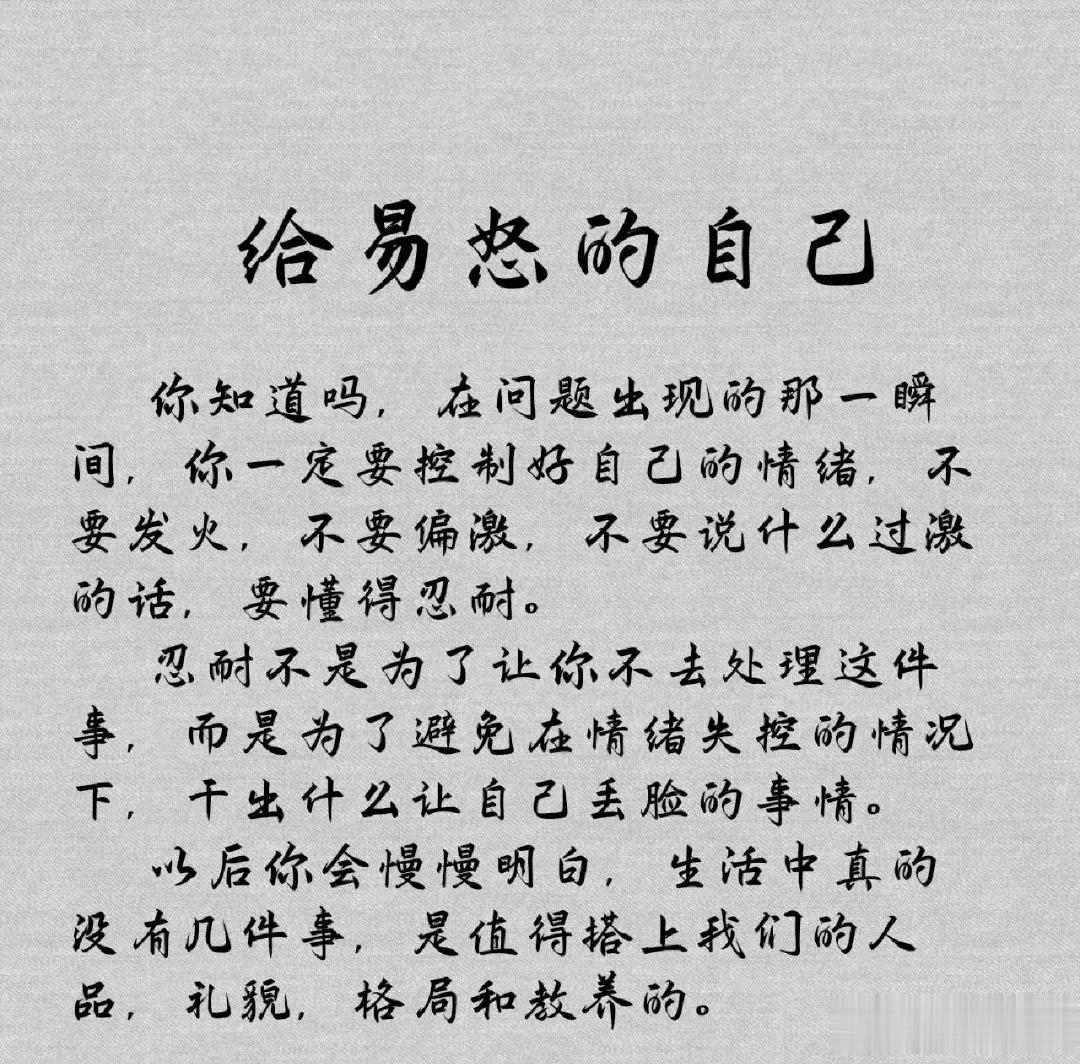 给易怒的自己
你知道吗，在问题出现的那一瞬
间，你一定要控制好自己的情绪，不
要发火，不要偏激，不要说什么过激
的话，要懂得忍耐。
忍耐不是为了让你不去处理这件
事，而是为了避免在情绪失控的情况
下，干出什么让自己丢脸的事情。
以后你会慢慢明白，生活中真的
没有几件事，是值得搭上我们的人
品，礼貌，格局和教养的。